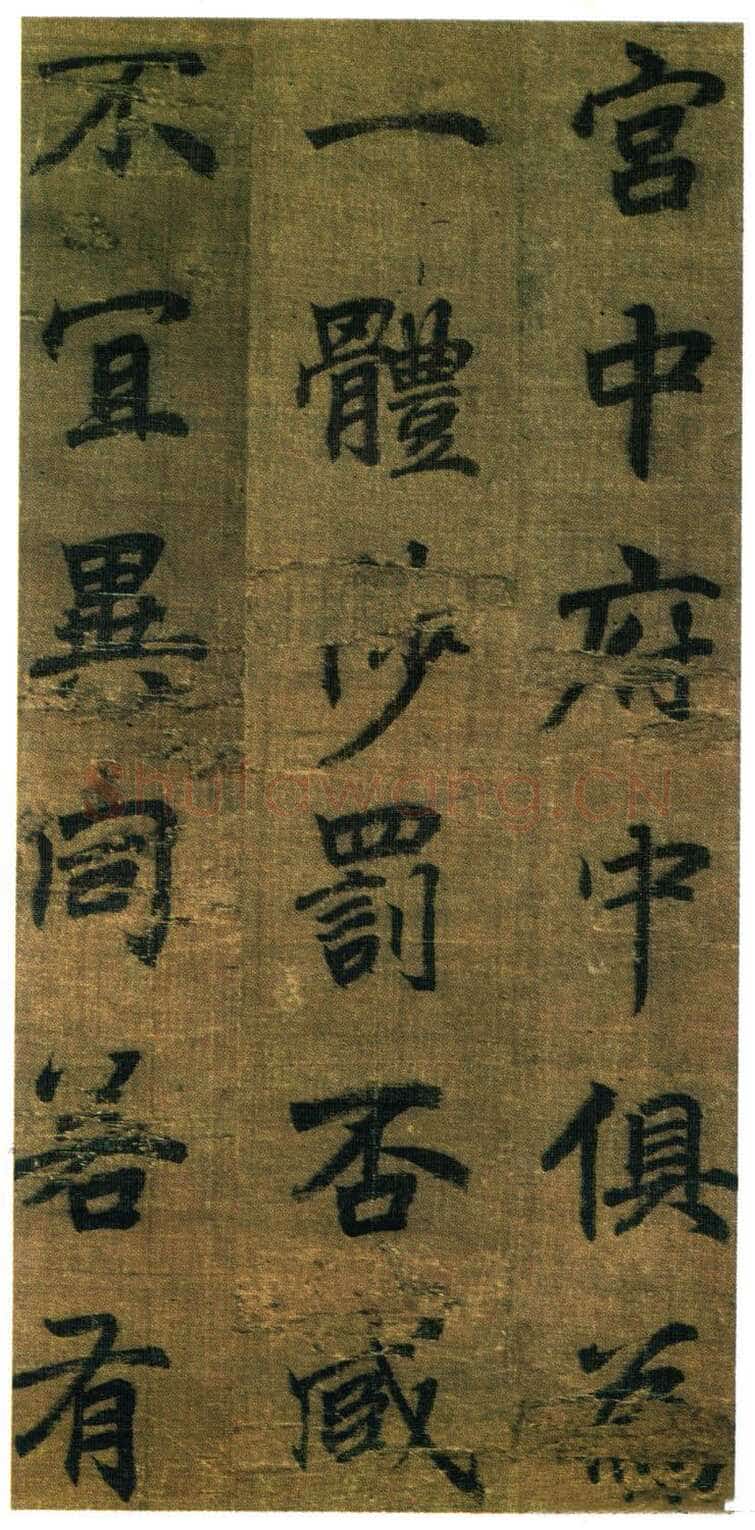 宮中府中俱為
一體陟罰否臧
不冝異同若有
shufawang.CN